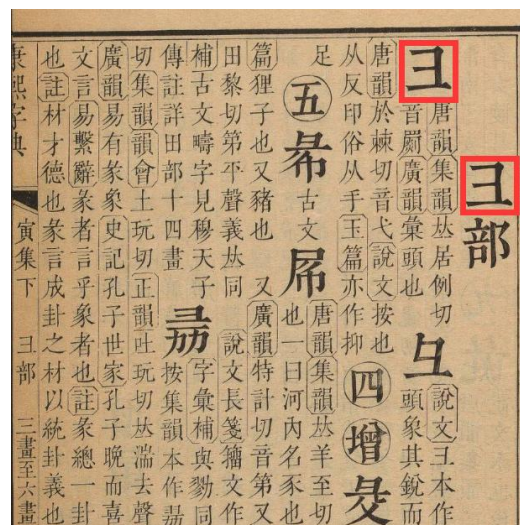 彐部
彐
唐韻集韻𠀤居例切
音罽廣韻彙頭也
彑
說文彐本作
頭象其銳而
唐韻於棘切音弋說文按也
从反印俗从手玉篇亦作抑
四增
足
五
㣇
古文
唐韻集韻𠀤羊至切
也一曰河內名豕也
又廣韻特計切音第又
篇狸子也又豬也
田黎切第平聲義𠀤同
說文長箋籀文作
補古文疇字見穆天子
字彙補與同
傳註詳田部十四畫
按集韻本作
切集韻韻會土玩切正韻吐玩切𠀤湍去聲
廣韻易有彖象史記孔子世家孔子晚而喜
文言易繫辭彖者言乎象者也註彖總一卦
也註材才德也彖言成卦之材以統卦義也
康熙字典 寅集下 彐部 三畫至六畫